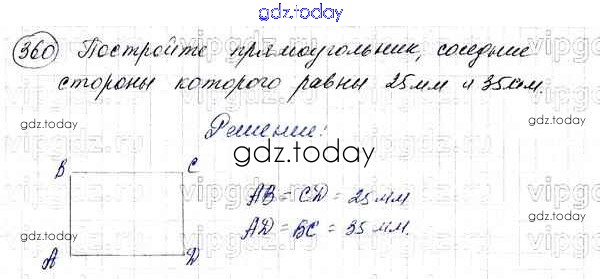 gdz.today
360 Постройте прямоугольник, соседние
стороны которого равны 25 мм и 35 мм.
gdz.today
Решение:
gdz.today
B C
AB = CD = 25 мм
AD = BC = 35 мм.
gdz.today
A D
gdz.today